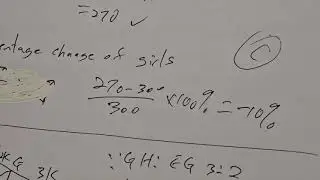 =270 ✓
entage change of girls
C
270-300/300 ×100% = -10%
3K
∵GH: EG 3:2